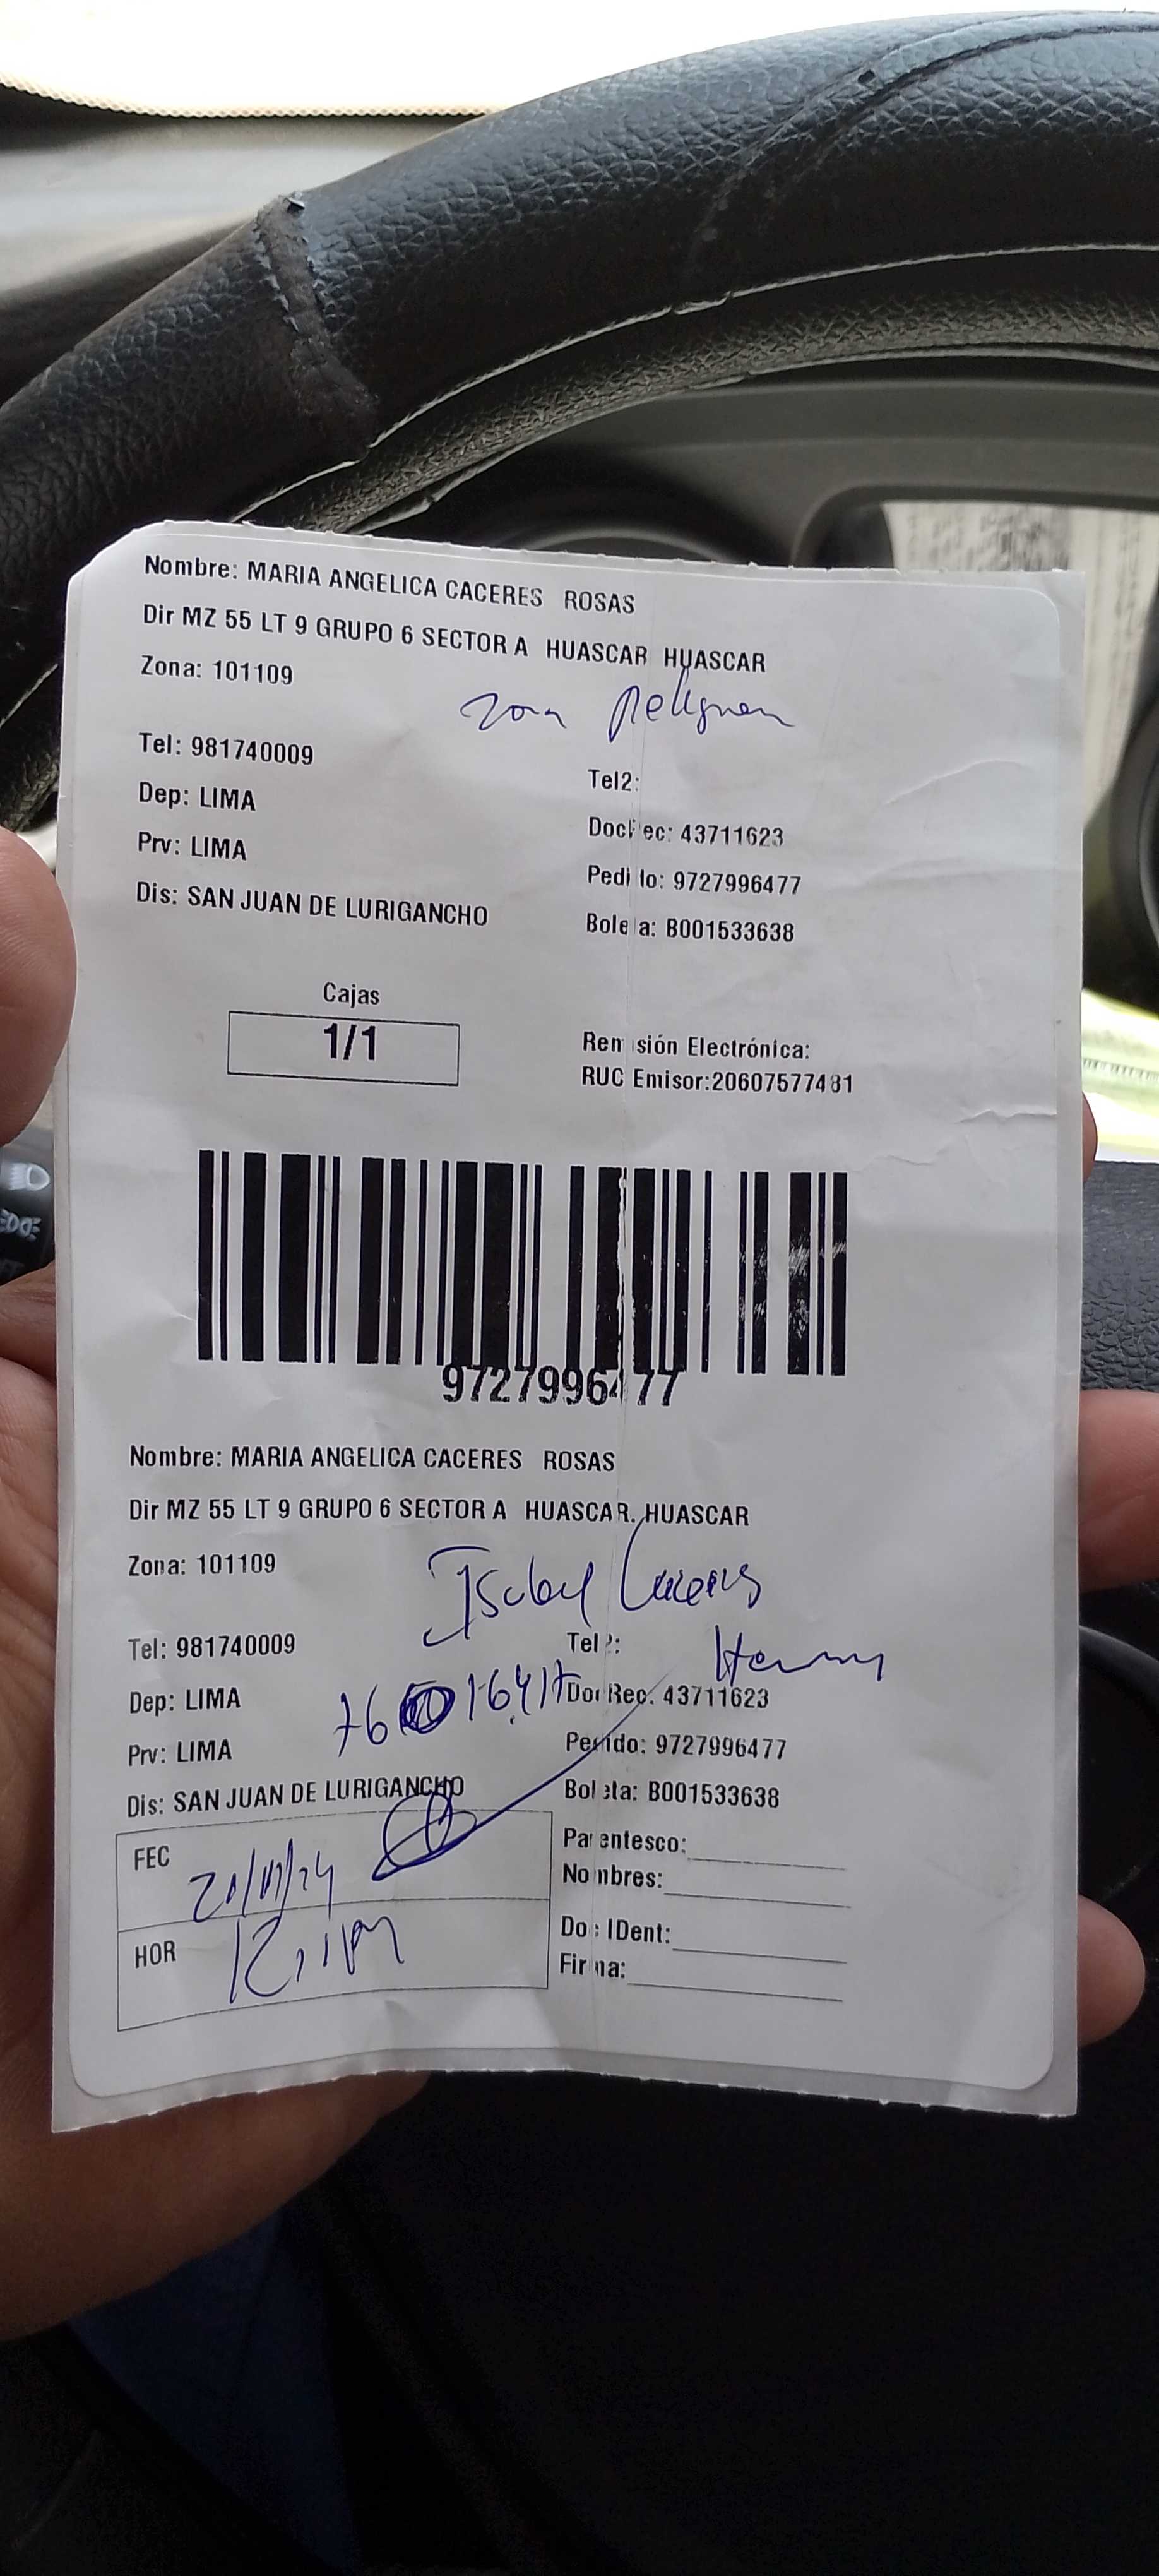 Nombre: MARIA ANGELICA CACERES ROSAS
Dir MZ 55 LT 9 GRUPO 6 SECTOR A HUASCAR HUASCAR
Zona: 101109
Zona Peligrosa
Tel: 981740009
Tel2:
Dep: LIMA
DocRec: 43711623
Prv: LIMA
Pedido: 9727996477
Dis: SAN JUAN DE LURIGANCHO
Boleta: B001533638
Cajas
1/1
Remisión Electrónica:
RUC Emisor:20607577481
9727996477
Nombre: MARIA ANGELICA CACERES ROSAS
Dir MZ 55 LT 9 GRUPO 6 SECTOR A HUASCAR. HUASCAR
Zona: 101109
Isabel Caceres
Tel: 981740009
Tel2:
Dep: LIMA
DocRec: 43711623
Prv: LIMA
Pedido: 9727996477
Dis: SAN JUAN DE LURIGANCHO
Boleta: B001533638
FEC
Parentesco:
Nombres:
HOR
Doc IDent:
Firma: